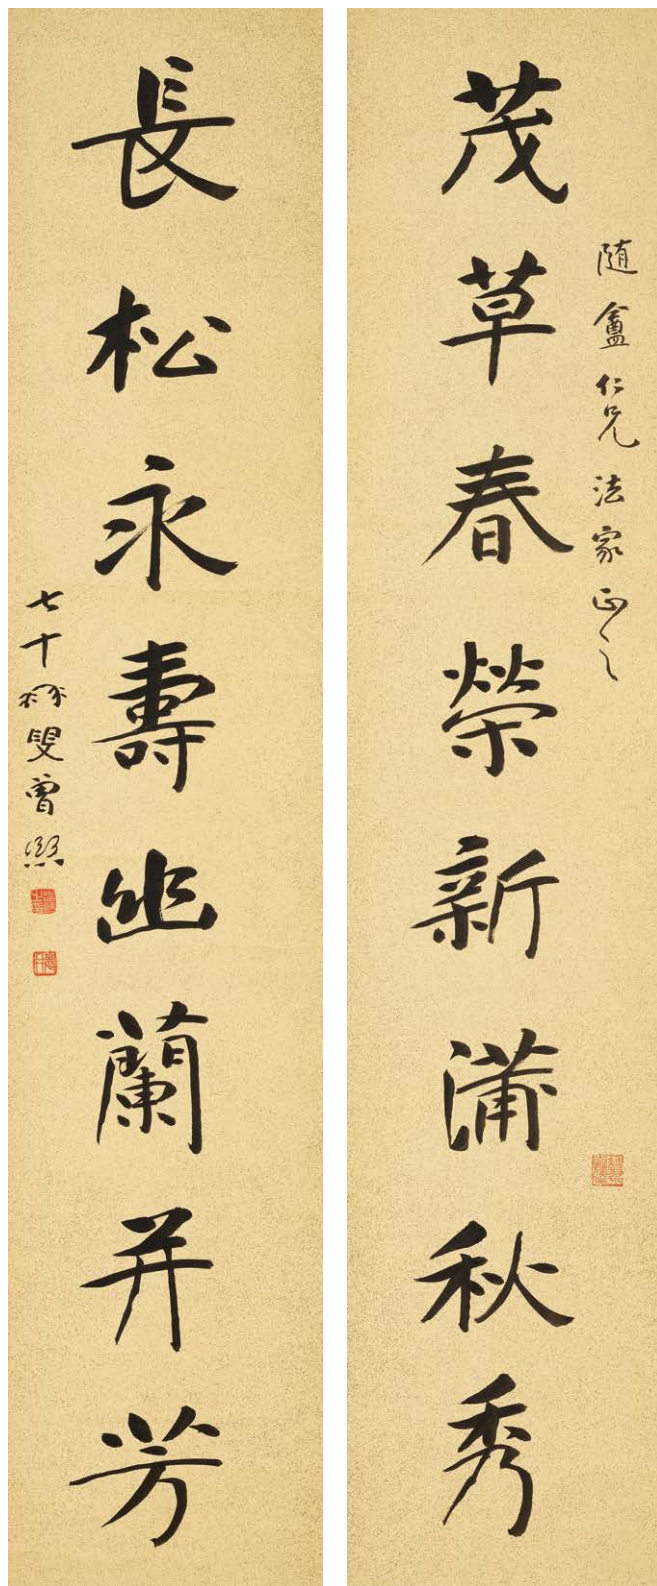 茂草春榮新蒲秋秀
随盦仁兄法家正之
長松永壽幽蘭并芳
七十髯叟曾熙